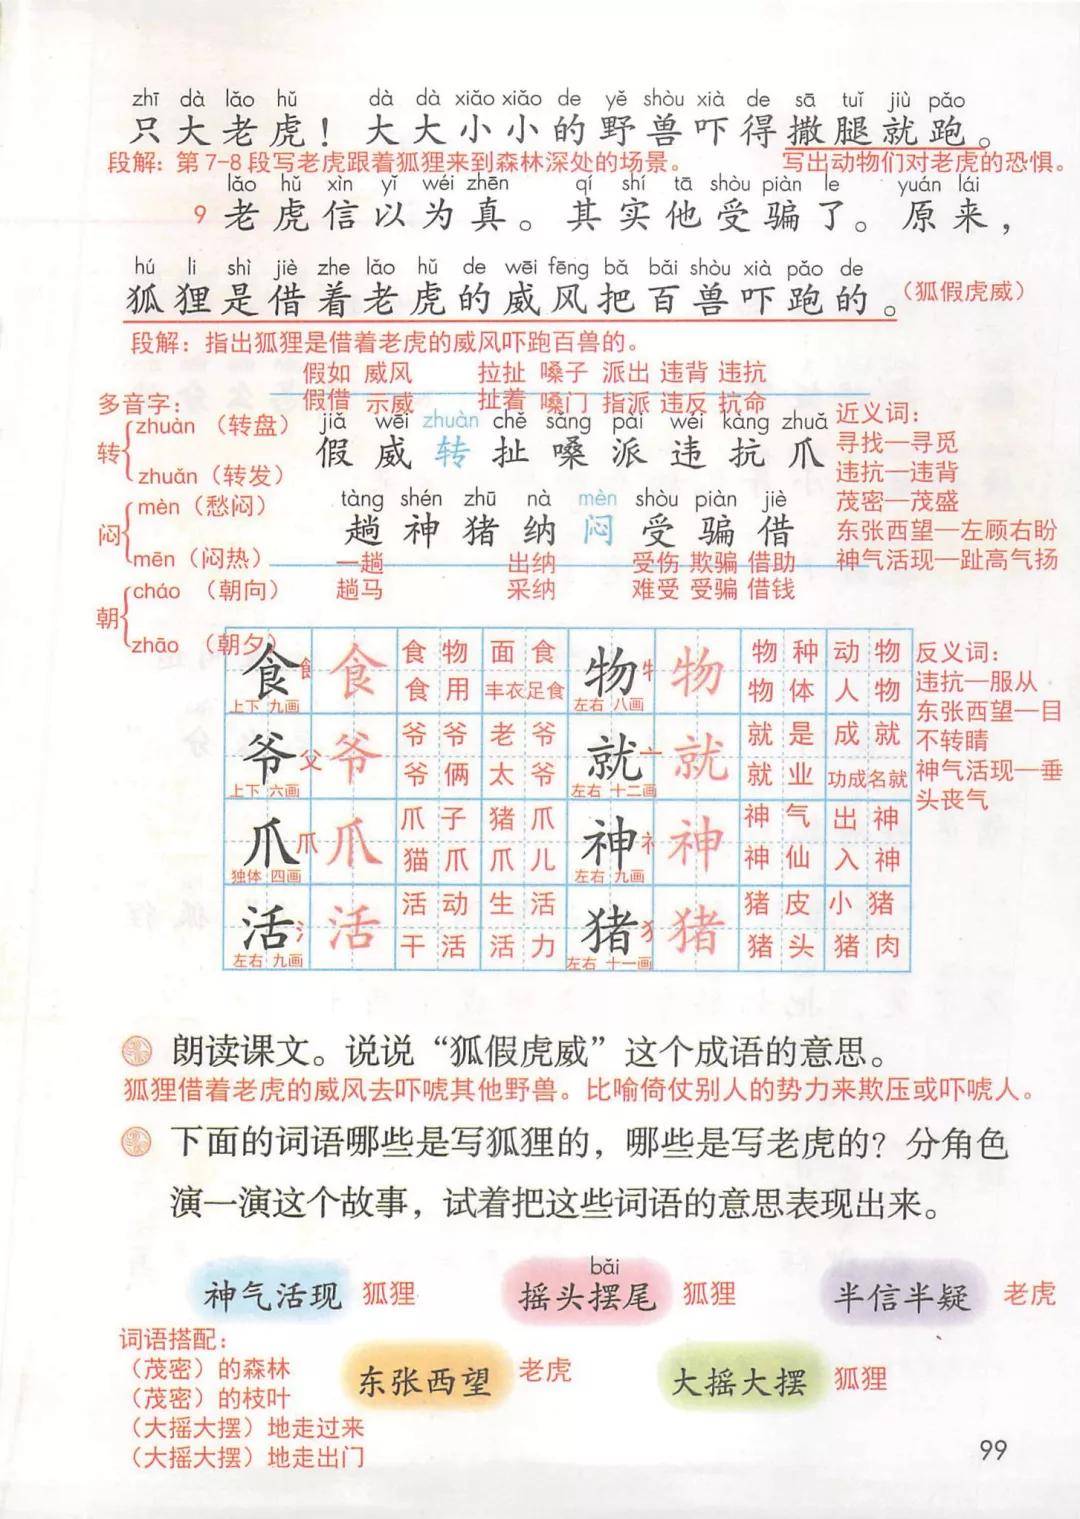 zhī dà lǎo hǔ dà dà xiǎo xiǎo de yě shòu xià de sā tuǐ jiù pǎo
只大老虎！大大小小的野兽吓得撒腿就跑。
段解：第7-8段写老虎跟着狐狸来到森林深处的场景。 写出动物们对老虎的恐惧。
lǎo hǔ xìn yǐ wéi zhēn qí shí tā shòu piàn le yuán lái
9 老虎信以为真。其实他受骗了。原来，
hú li shì jiè zhe lǎo hǔ de wēi fēng bǎ bǎi shòu xià pǎo de
狐狸是借着老虎的威风把百兽吓跑的。（狐假虎威）
段解：指出狐狸是借着老虎的威风吓跑百兽的。
假如 威风 拉扯 嗓子 派出 违背 违抗
假借 示威 扯着 嗓门 指派 违反 抗命
多音字：
转
zhuàn（转盘）
zhuǎn（转发）
闷
mèn（愁闷）
mēn（闷热）
朝
cháo（朝向）
zhāo（朝夕）
jiǎ wēi zhuàn chě sǎng pài wéi kàng zhuǎ
假 威 转 扯 嗓 派 违 抗 爪
tàng shén zhū nà mèn shòu piàn jiè
趟 神 猪 纳 闷 受 骗 借
一趟 出纳 受伤 欺骗 借助
趟马 采纳 难受 受骗 借钱
近义词：
寻找—寻觅
违抗—违背
茂密—茂盛
东张西望—左顾右盼
神气活现—趾高气扬
食 饣 食 食物 面食 物 牜 物 物种 动物
上下 九画 食用 丰衣足食 左右 八画 物体 人物
爷 父 爷 爷爷 老爷 就 亠 就 就是 成就
上下 六画 爷俩 太爷 左右 十二画 就业 功成名就
爪 爪 爪 爪子 猪爪 神 礻 神 神气 出神
独体 四画 猫爪 爪儿 左右 九画 神仙 入神
活 氵 活 活动 生活 猪 犭 猪 猪皮 小猪
左右 九画 干活 活力 左右 十一画 猪头 猪肉
反义词：
违抗—服从
东张西望—目
不转睛
神气活现—垂
头丧气
朗读课文。说说“狐假虎威”这个成语的意思。
狐狸借着老虎的威风去吓唬其他野兽。比喻倚仗别人的势力来欺压或吓唬人。
下面的词语哪些是写狐狸的，哪些是写老虎的？分角色
演一演这个故事，试着把这些词语的意思表现出来。
bǎi
神气活现 狐狸 摇头摆尾 狐狸 半信半疑 老虎
东张西望 老虎 大摇大摆 狐狸
词语搭配：
（茂密）的森林
（茂密）的枝叶
（大摇大摆）地走过来
（大摇大摆）地走出门
99